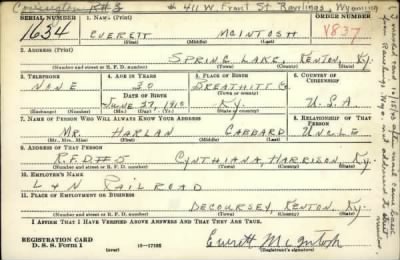 Covington R#3 411 W. Front St. Rawlings, Wyoming
SERIAL NUMBER 1. NAME (Print) ORDER NUMBER
1634 EVERETT McINTOSH V837
(First) (Middle) (Last)
2. ADDRESS (Print)
SPRING LAKE, KENTON Ky.
(Number and street or R. F. D. number) (Town) (County) (State)
3. TELEPHONE 4. AGE IN YEARS 5. PLACE OF BIRTH 6. COUNTRY OF CITIZENSHIP
NONE 30 BREATHITT Co.
DATE OF BIRTH (Town or county)
JUNE 27, 1910 Ky. U.S.A
(Exchange) (Number) (Mo.) (Day) (Yr.) (State or country)
7. NAME OF PERSON WHO WILL ALWAYS KNOW YOUR ADDRESS 8. RELATIONSHIP OF THAT PERSON
MR. HARLAN GABBARD UNCLE
(Mr., Mrs., Miss) (First) (Middle) (Last)
9. ADDRESS OF THAT PERSON
R.F.D.#5 CYNTHIANA, HARRISON, Ky.
(Number and street or R. F. D. number) (Town) (County) (State)
10. EMPLOYER'S NAME
L & N RAILROAD
11. PLACE OF EMPLOYMENT OR BUSINESS
DECOURSEY, KENTON, Ky.
(Number and street or R. F. D. number) (Town) (County) (State)
I AFFIRM THAT I HAVE VERIFIED ABOVE ANSWERS AND THAT THEY ARE TRUE.
REGISTRATION CARD
D. S. S. Form 1 16—17105 Everett McIntosh
(Registrant's signature)